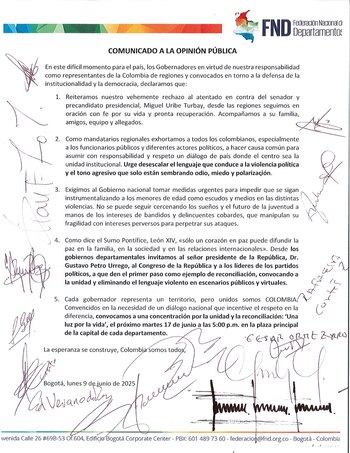 FND Federación Nacional de
Departamentos
COMUNICADO A LA OPINIÓN PÚBLICA
En este difícil momento para el país, los Gobernadores en virtud de nuestra responsabilidad
como representantes de la Colombia de regiones y convocados en torno a la defensa de la
institucionalidad y la democracia, declaramos que:
1. Reiteramos nuestro vehemente rechazo al atentado en contra del senador y
precandidato presidencial, Miguel Uribe Turbay, desde las regiones seguimos en
oración con fe por su vida y pronta recuperación. Acompañamos a su familia,
amigos, equipo y allegados.
2. Como mandatarios regionales exhortamos a todos los colombianos, especialmente
a los funcionarios públicos y diferentes actores políticos, a hacer causa común para
asumir con responsabilidad y respeto un diálogo de país donde el centro sea la
unidad institucional. Urge desescalar el lenguaje que conduce a la violencia política
y el tono agresivo que solo están sembrando odio, miedo y polarización.
3. Exigimos al Gobierno nacional tomar medidas urgentes para impedir que se sigan
instrumentalizando a los menores de edad como escudos y medios en las distintas
violencias. No se puede seguir cercenando los sueños y el futuro de la juventud a
manos de los intereses de bandidos y delincuentes cobardes, que manipulan su
fragilidad con intereses perversos para perpetuar sus ataques.
4. Como dice el Sumo Pontífice, León XIV, «sólo un corazón en paz puede difundir la
paz en la familia, en la sociedad y en las relaciones internacionales». Desde los
gobiernos departamentales invitamos al señor presidente de la República, Dr.
Gustavo Petro Urrego, al Congreso de la República y a los líderes de los partidos
políticos, a que den el primer paso como ejemplo de reconciliación, convocando a
la unidad y eliminando el lenguaje violento en escenarios públicos y virtuales.
5. Cada gobernador representa un territorio, pero unidos somos COLOMBIA.
Convencidos en la necesidad de un diálogo nacional que incentive el respeto en la
diferencia, convocamos a una concentración por la unidad y la reconciliación: 'Una
luz por la vida', el próximo martes 17 de junio a las 5:00 p.m. en la plaza principal
de la capital de cada departamento.
CESAR ORTIZ ZORRO
La esperanza se construye, Colombia Somos todos,
Bogotá, lunes 9 de junio de 2025
wenida Calle 26 #69B-53 Of.604, Edificio Bogotá Corporate Center - PBX: 601 489 73 60 - federacion@fnd.org.co - Bogotá - Colombi